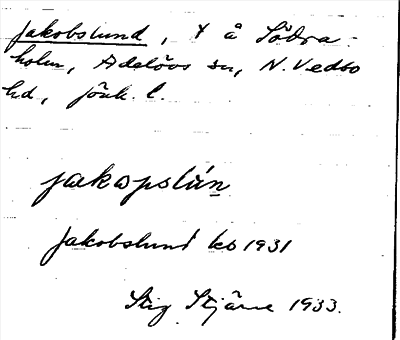 Jakobslund, t å Södra-
holm, Adelövs sn, N. Vedbo
hd, Jönk. l.
jakɷpslún
Jakobslund kb 1931
Stig Stjärne 1933.